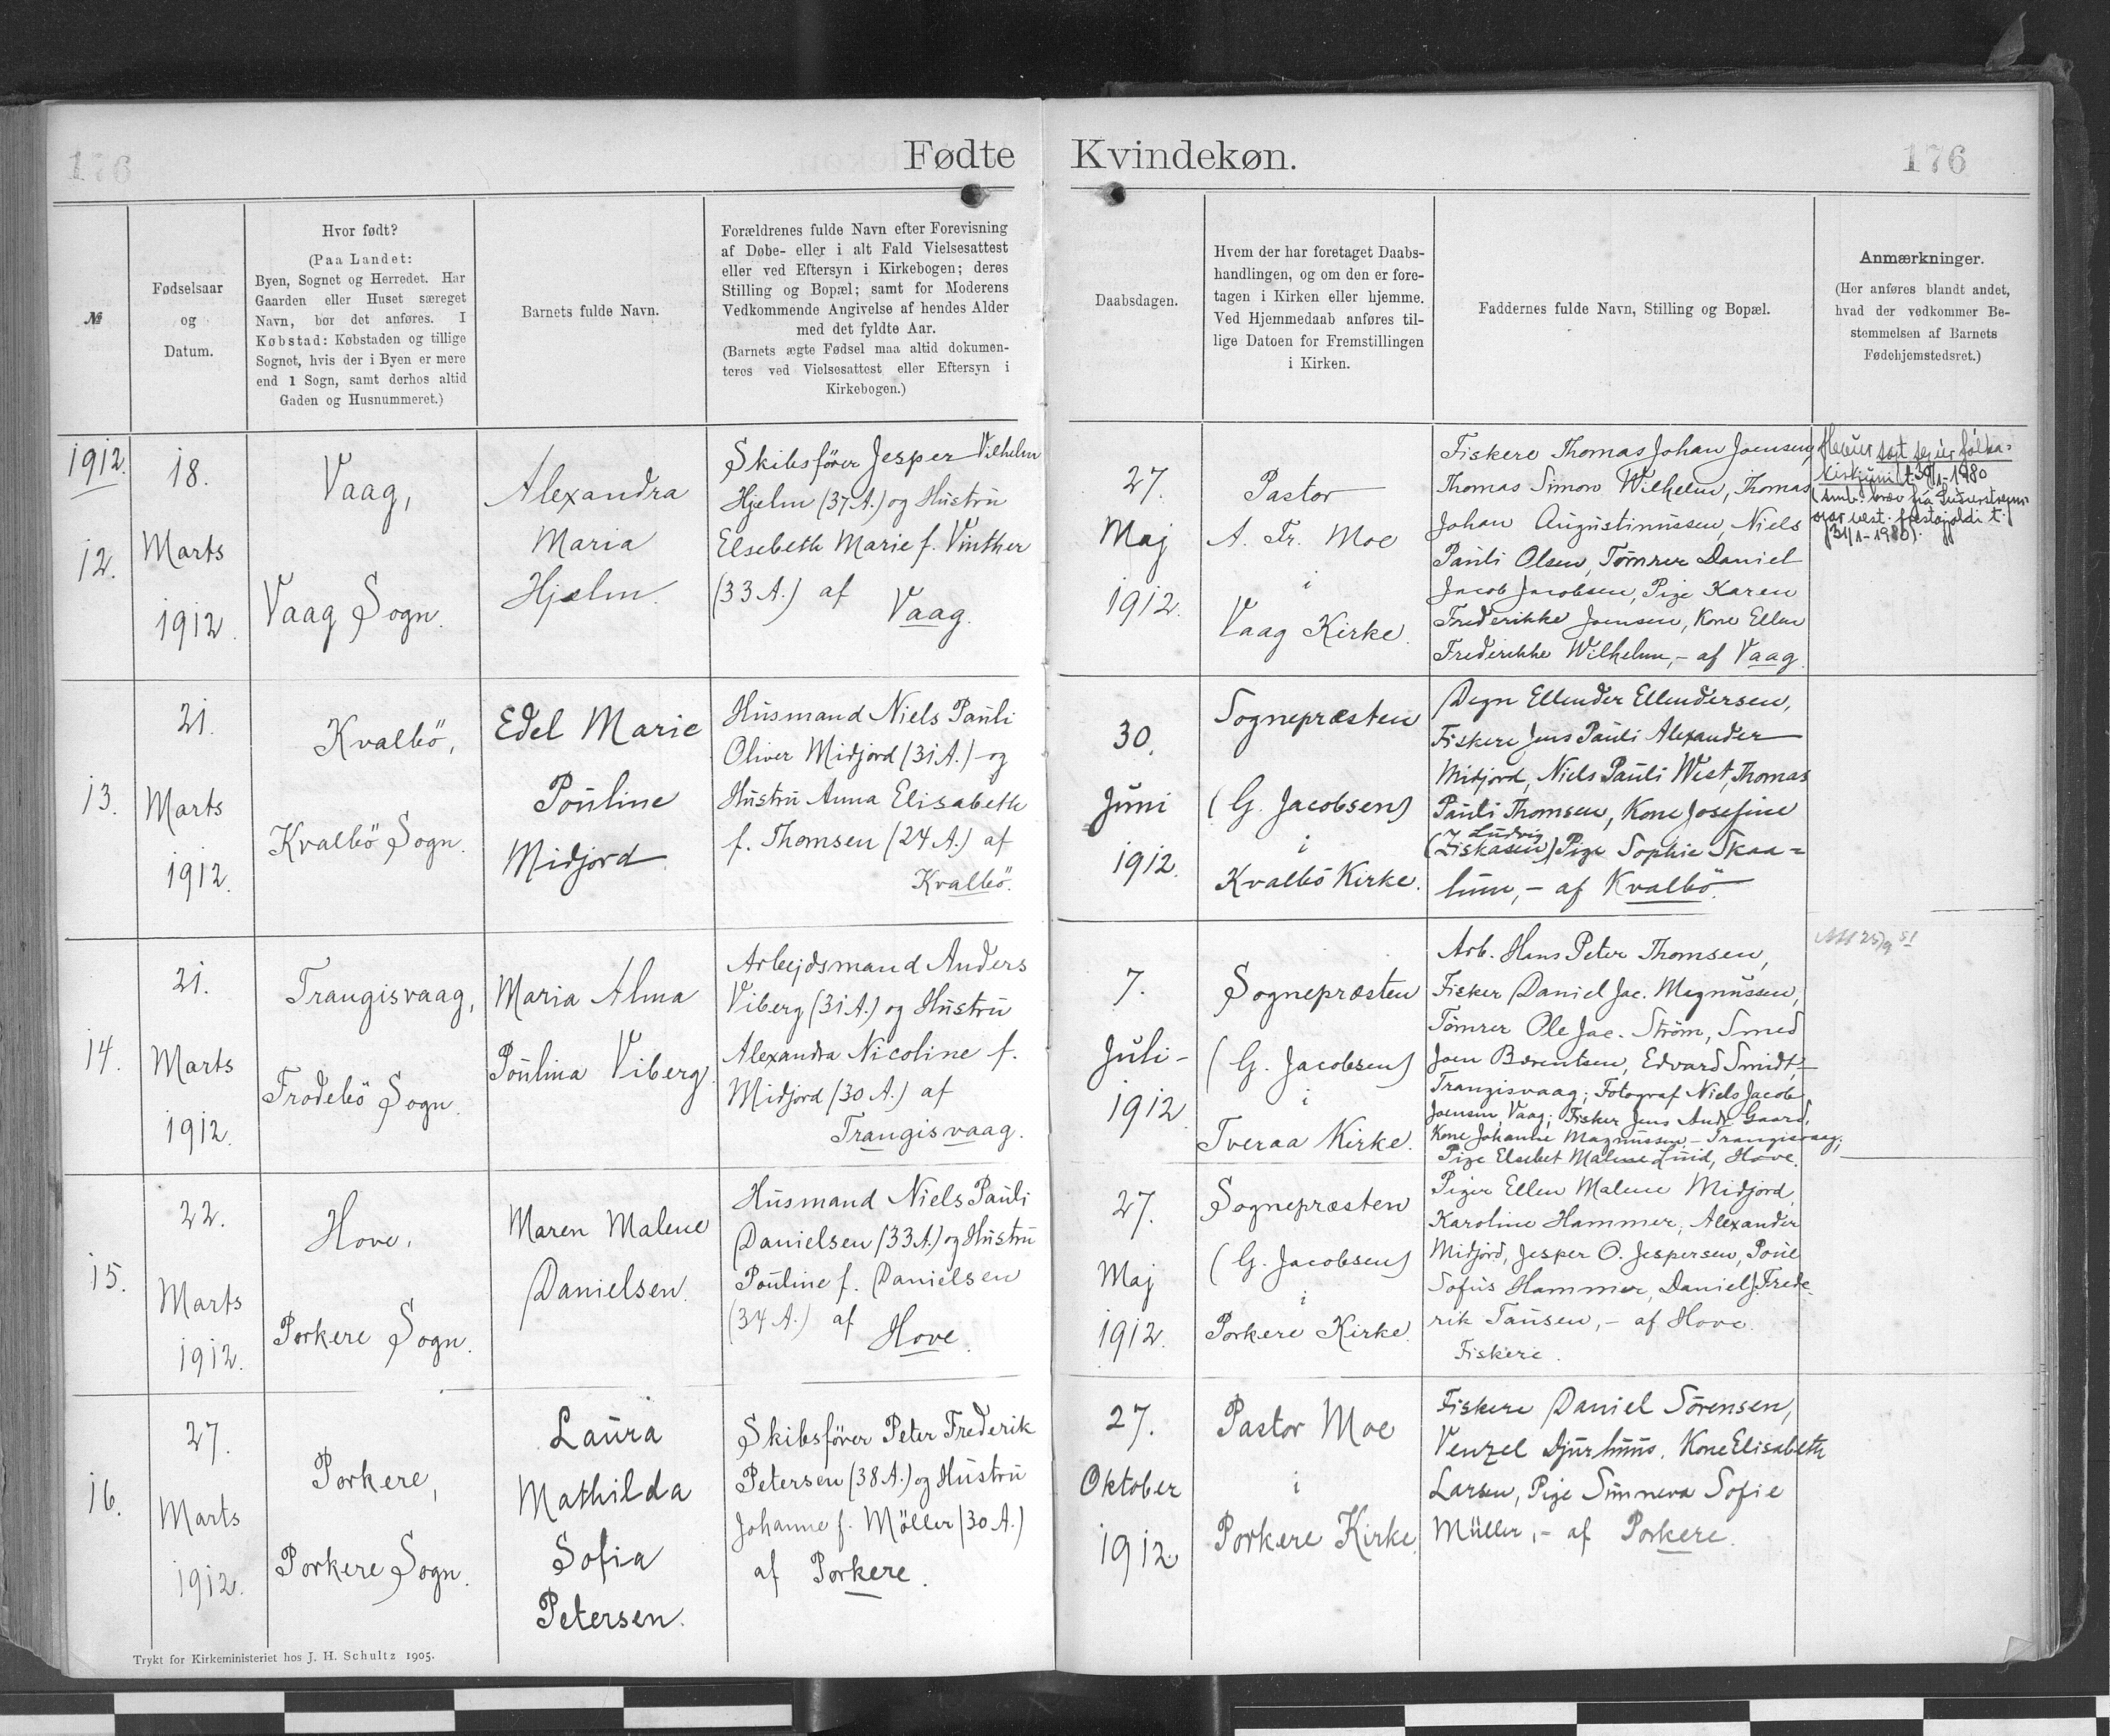 176
Fødte
Kvindekøn.
176
№
Fødselsaar
og
Datum.
Hvor født?
(Paa Landet:
Byen, Sognet og Herredet. Har
Gaarden eller Huset særeget
Navn, bør det anføres. I
Købstad: Købstaden og tillige
Sognet, hvis der i Byen er mere
end 1 Sogn, samt derhos altid
Gaden og Husnummeret.)
Barnets fulde Navn.
Forældrenes fulde Navn efter Forevisning
af Døbe- eller i alt Fald Vielsesattest
eller ved Eftersyn i Kirkebogen; deres
Stilling og Bopæl; samt for Moderens
Vedkommende Angivelse af hendes Alder
med det fyldte Aar.
(Barnets ægte Fødsel maa altid dokumen-
teres ved Vielsesattest eller Eftersyn i
Kirkebogen.)
Daabsdagen.
Hvem der har foretaget Daabs-
handlingen, og om den er fore-
tagen i Kirken eller hjemme.
Ved Hjemmedaab anføres til-
lige Datoen for Fremstillingen
i Kirken.
Faddernes fulde Navn, Stilling og Bopæl.
Anmærkninger.
(Her anføres blandt andet,
hvad der vedkommer Be-
stemmelsen af Barnets
Fødehjemstedsret.)
1912.
12.
18.
Marts
1912.
Vaag,
Vaag Sogn.
Alexandra
Maria
Hjelm.
Skibsfører Jesper Vilhelm
Hjelm (37 A.) og Hustru
Elsebeth Marie f. Vinther
(33 A.) af
Vaag.
27.
Maj
1912.
Pastor
A. Fr. Moe
i
Vaag Kirke.
Fiskere Thomas Johan Joensen,
Thomas Simon Wilhelm, Thomas
Johan Augustinussen, Niels
Pauli Olsen, Tømrer Daniel
Jacob Jacobsen, Pige Karen
Frederikke Joensen, Kone Ellen
Frederikke Wilhelm, - af Vaag.
Hevur sagt seg úr fólka-
kirkjuni t. 30/1-1980
(smb. bræv frá Suðurstreym-
oyar vest. prestagjaldi t.
31/1-1980).
13.
21.
Marts
1912.
Kvalbö,
Kvalbö Sogn.
Edel Marie
Pouline
Midjord.
Husmand Niels Pauli
Oliver Midjord (31 A.) og
Hustru Anna Elisabeth
f. Thomsen (24 A.) af
Kvalbö.
30.
Juni
1912.
Sognepræsten
(G. Jacobsen)
i
Kvalbö Kirke.
Degn Ellender Ellendersen,
Fiskere Jens Pauli Alexander
Midjord, Niels Pauli West, Thomas
Pauli Thomsen, Kone Josefine
Ludvig
Pige Sophie Skaa=
lum, - af Kvalbö.
14.
21.
Marts
1912.
Trangisvaag,
Frodebö Sogn.
Maria Alma
Poulina Viberg.
Arbejdsmand Anders
Viberg (31 A.) og Hustru
Alexandra Nicoline f.
Midjord (30 A.) af
Trangisvaag.
7.
Juli -
1912
Sognepræsten
(G. Jacobsen)
i
Tveraa Kirke.
Arb. Hans Peter Thomsen,
Fisker Daniel Jac. Magnussen,
Tömrer Ole Jac. Ström, Smed
Joen Berentsen, Edvard Smidt, -
Trangisvaag; Fotograf Niels Jacob
Joensen, Vaag; Fisker Jens Andr. Gaard,
Kone Johanne Magnussen, - Trangisvaag;
Pige Elsebet Malene Lind, Hove.
25/9 51
15.
22.
Marts
1912.
Hove,
Porkere Sogn.
Maren Malene
Danielsen.
Husmand Niels Pauli
Danielsen (33 A.) og Hustru
Pouline f. Danielsen
(34 A.) af
Hove.
27.
Maj
1912.
Sognepræsten
(G. Jacobsen)
i
Porkere Kirke.
Piger Ellen Malene Midjord,
Karoline Hammer, Alexander
Midjord, Jesper O. Jespersen, Poul
Sofus Hammer, Daniel J. Frede-
rik Tausen, - af Hove.
Fiskere.
16.
27.
Marts
1912.
Porkere,
Porkere Sogn.
Laura
Mathilda
Sofia
Petersen.
Skibsfører Peter Frederik
Petersen (38 A.) og Hustru
Johanne f. Möller (30 A.)
af Porkere.
27.
Oktober
1912.
Pastor Moe
i
Porkere Kirke.
Fiskere Daniel Sörensen,
Venzel Djurhuus, Kone Elisabeth
Larsen, Pige Sunneva Sofie
Müller, - af Porkere.
Trykt for Kirkeministeriet hos J. H. Schultz 1905.